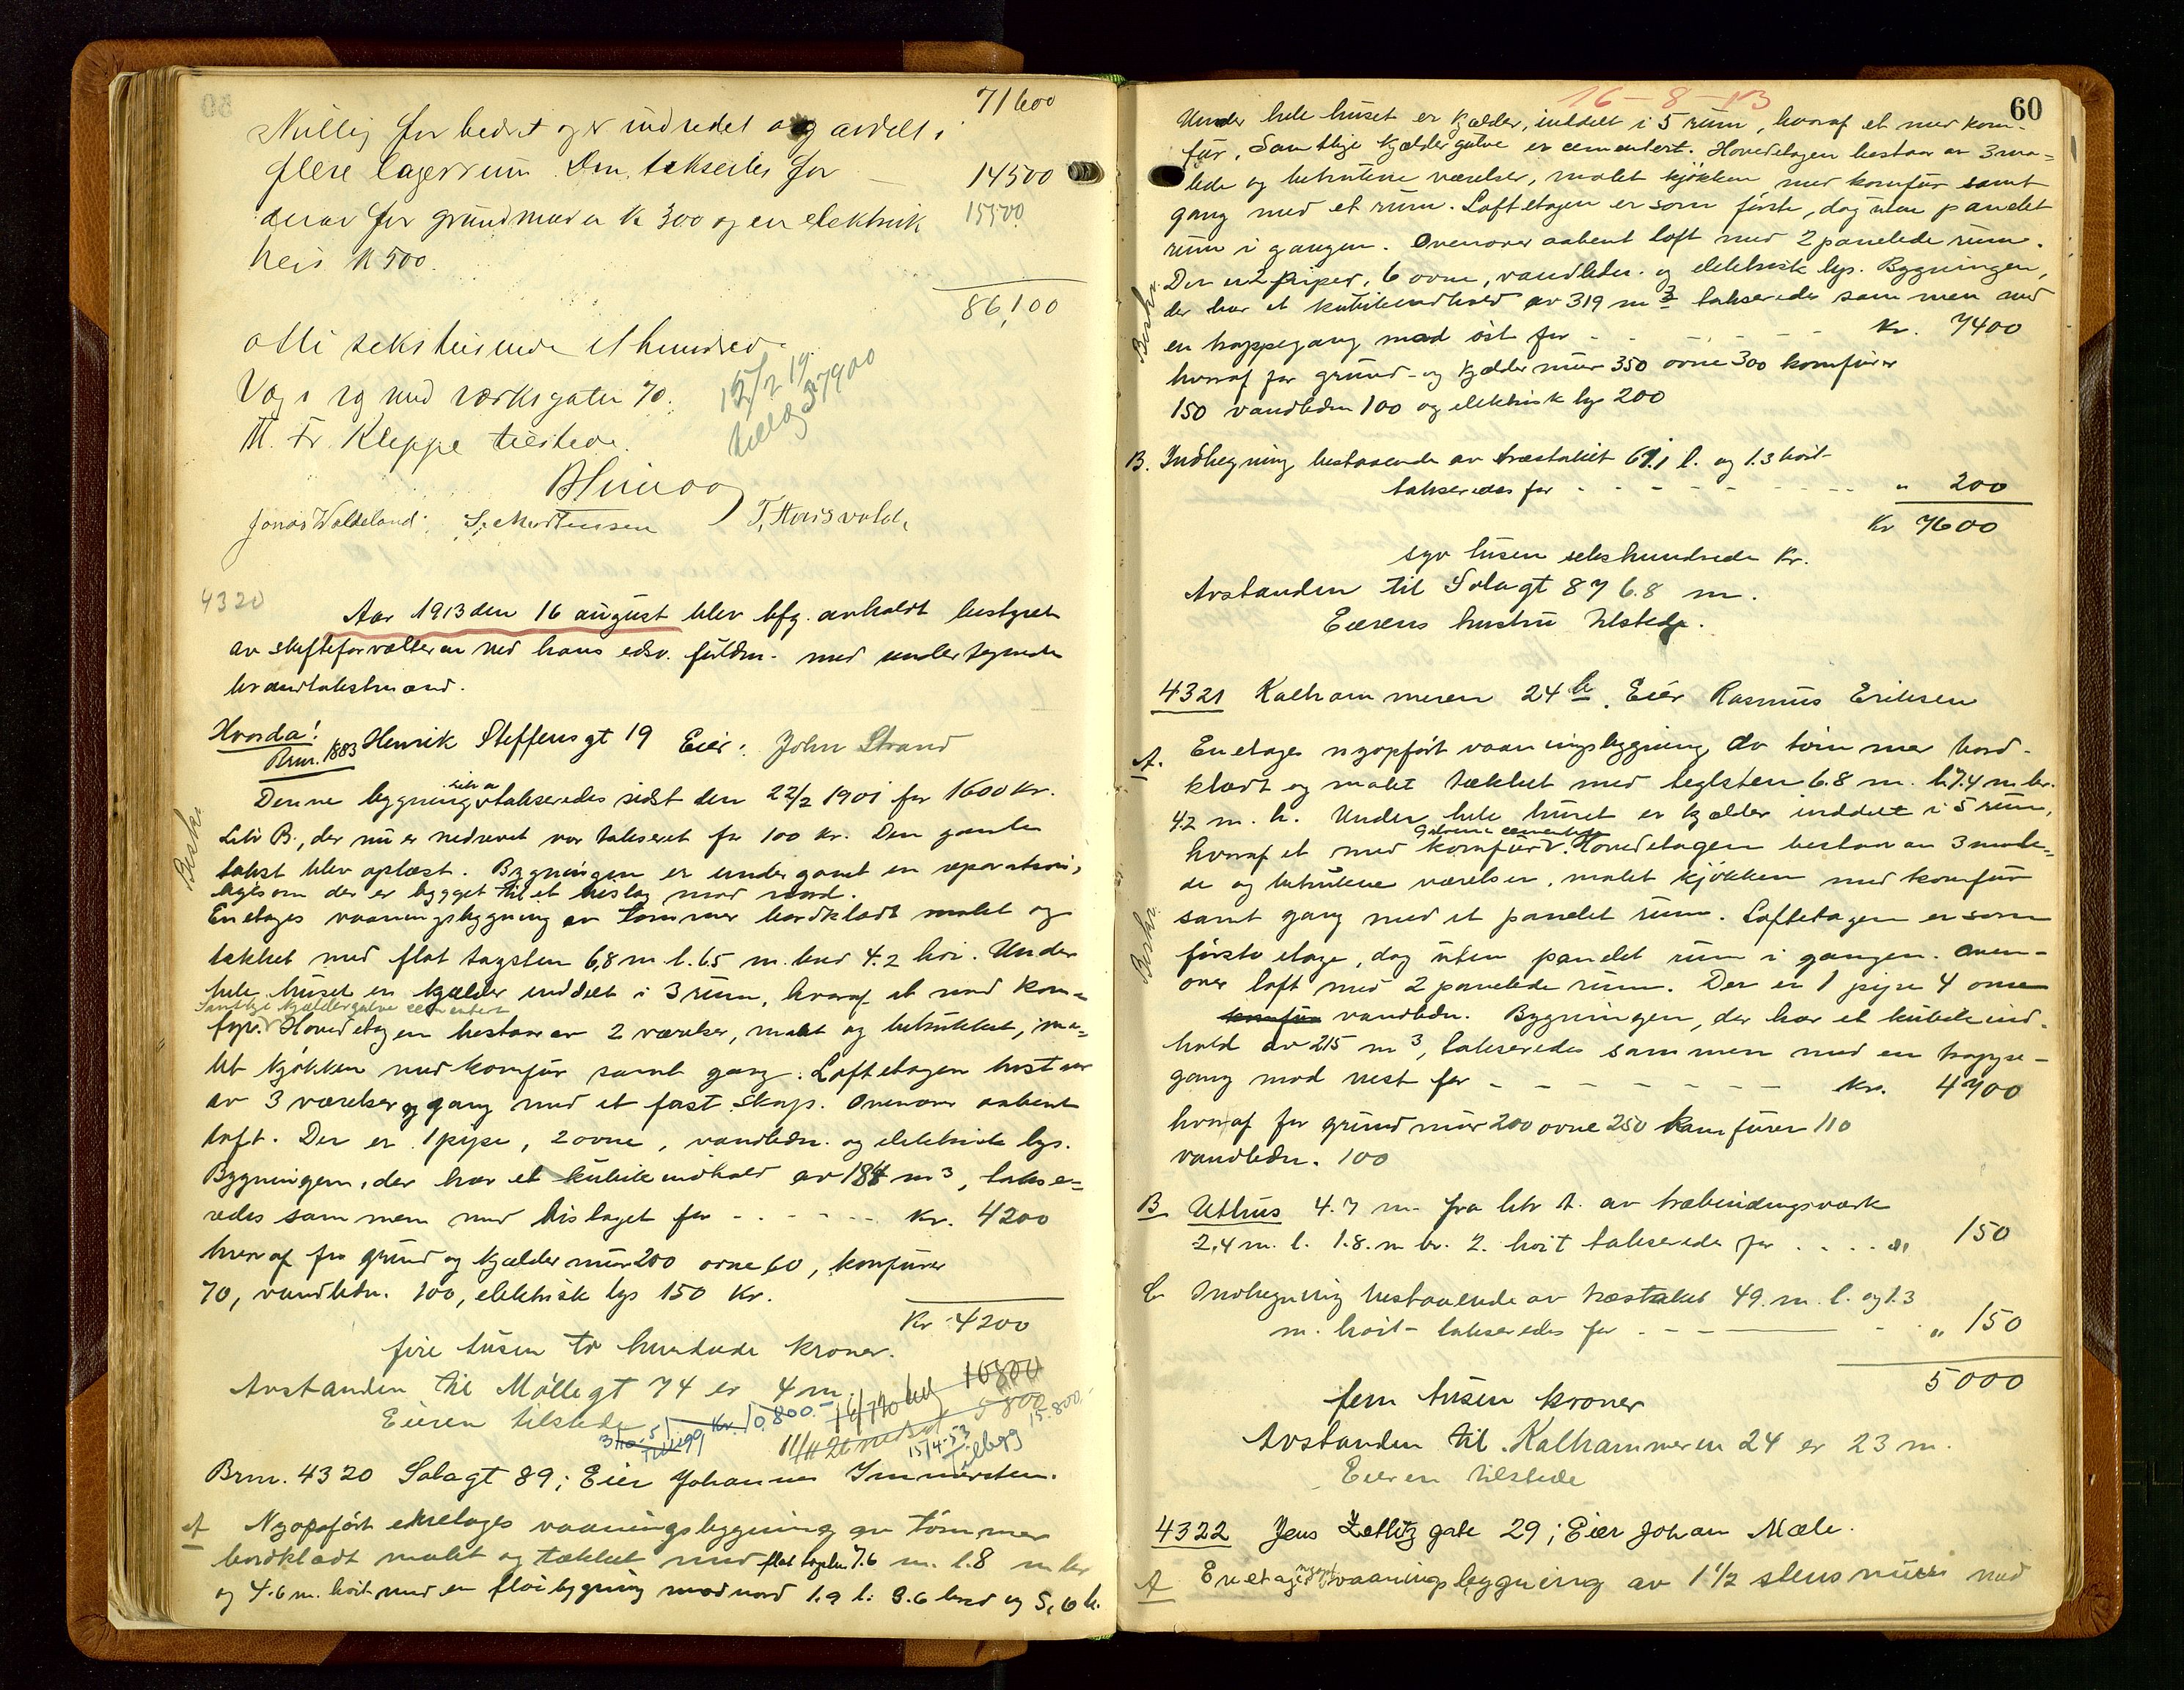 71600
betydelig forbedret og er indredet og avdelt i
flere lagerrum. Den takseres for — 14500
derav for grundmur er K 300 og en elektrisk 15500.
heis K 500.
86,100
otti sekstusinde et hundred.
Væg i væg med Værksgaten 70.
M. Fr. Kleppe tilstede.
15/2 19
tillæg 37900
Jonas Waldeland. S. Mortensen T. Hausvold.
4320
Aar 1913 den 16 august blev bfg. avholdt bestyret
av skifteforvalteren ved hans edsv. fuldm. med undertegnede
brandtakstmænd.
Hvorda!
Brnr. 1883 Henrik Steffensgt 19 Eier: John Strand
Denne bygning litr a takseredes sidst den 22/2 1901 for 1600 kr.
Litr B., der nu er nedrevet var takseret for 100 kr. Den gamle
takst blev oplæst. Bygningen er undergaaet en reparation,
ligesom der er bygget til et bislag mod nord.
Beskr.
Enetages vaaningsbygning av tømmer bordklædt malet og
tækket med flat tagsten 6,8 m. l. 6.5 m. bred 4.2 høi. Under
hele huset er kjælder inddelt i 3 rum, hvoraf et med kom-
Samtlige kjældergulve cementert
fyr. Hovedetagen bestaar av 2 værelser, malt og betrukket, ma-
let kjøkken med komfur samt gang. Loftetagen bestaar
av 3 værelser og gang med et fast skap. Ovenover aabent
loft. Der er 1 pipe, 2 ovne, vandledn. og elektrisk lys.
Bygningen, der har et kubikindhold av 184 m3, takse-
redes sammen med bislaget for - - - - - kr. 4200
hvoraf for grund og kjældermur 200 ovne 60, komfurer
70, vandledn. 100, elektrisk lys 150 Kr.
Kr 4200
fire tusen to hundrede kroner.
Avstanden til Møllegt 74 er 4 m.
Eieren tilstede
10800
5800
15.800.
Kr. 10.800.-
Tillegg
15/4-53
Tillegg
Brnr. 4320 Solagt 89; Eier Johannes Immersten.
A Nyopført enetages vaaningsbygning av tømmer
bordklædt malet og tækket med flat tagsten 7.6 m. l. 8 m br
og 4.6 m. høit med en fløibygning mod nord 1.9 l. 3.6 bred og 5,6 h.
16-8-13
60
Under hele huset er kjælder, inddelt i 5 rum, hvoraf et med kom-
fur. Samtlige kjældergulve er cementert. Hovedetagen bestaar av 3 ma-
lede og betrukne værelser, malet kjøkken med komfur samt
gang med et rum. Loftetagen er som første, dog uten panelet
rum i gangen. Ovenover aabent loft med 2 panelede rum.
Der er 2 piper, 6 ovne, vandledn. og elektrisk lys. Bygningen,
der har et kubikindhold av 319 m3 takseredes sammen med
en trappegang mod øst for - - - kr. 7400
Beskr.
hvoraf for grund- og kjældermur 350 ovne 300 komfurer
150 vandledn 100 og elektrisk lys 200
B. Indhegning bestaaende av træstakit 61.1 l. og 1.3 høit
takseredes for - - - - - - - - " 200
Kr 7600
syv tusen sekshundrede Kr.
Avstanden til Solagt 87 6.8 m.
Eierens hustru tilstede.
4321 Kalhammeren 24 b. Eier Rasmus Eriksen
A. Enetages nyopført vaaningsbygning av tømmer bord-
klædt og malet tækket med teglsten 6.8 m. l. 7.4 m. br.
4.2 m. h. Under hele huset er kjælder inddelt i 5 rum,
Gulvene cementert
hvoraf et med komfur. Hovedetagen bestaar av 3 male-
de og betrukne værelser, malet kjøkken med komfur
samt gang med et panelet rum. Loftetagen er som
Beskr.
første etage, dog uten panelet rum i gangen. Oven-
over loft med 2 panelede rum. Der er 1 pipe 4 ovne
komfur vandledn. Bygningen, der har et kubikind-
hold av 215 m3, takseredes sammen med en trappe-
gang mod vest for - - - - - - - - kr. 4700
hvoraf for grundmur 200 ovne 250 komfurer 110
vandledn. 100
B Uthus 4.7 m. fra litr A. av træbindingsværk
2.4 m. l. 1.8. m br. 2. høit takseredes for . . . . " 150
C Indhegning bestaaende av træstakit 49. m. l. og 1.3
m. høit - takseredes for - - - - " 150
5000
fem tusen kroner
Avstanden til Kalhammeren 24 er 23 m.
Eieren tilstede
4322 Jens Zetlitz gate 29; Eier Johan Mæle.
A Enetages nyopf vaaningsbygning av 1 1/2 stens mur med